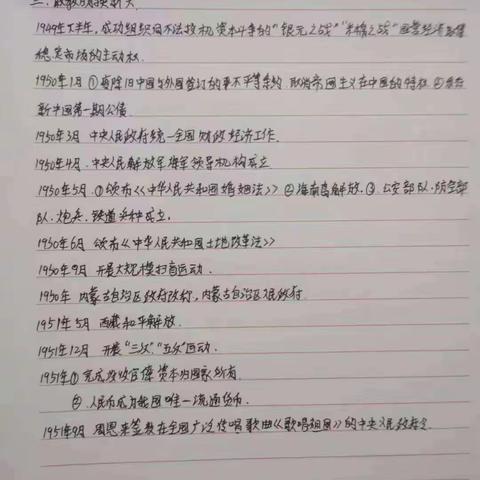 1949年下半年,成功组织同不法投机资本斗争的"银元之战""米棉之战"国营经济取得
稳定市场的主动权.
1950年1月 ①废除旧中国与外国签订的不平等条约 取消帝国主义在中国的特权 ②发行
新中国第一期公债.
1950年3月 中央人民政府统一全国财政经济工作.
1950年4月.中央人民解放军海军领导机构成立
1950年5月.①颁布《中华人民共和国婚姻法》 ②海南岛解放.③.公安部队.防空部
队.炮兵.铁道兵种成立.
1950年6月 颁布《中华人民共和国土地改革法》
1950年9月 开展大规模扫盲运动.
1950年 内蒙古自治区政府改称,内蒙古自治区人民政府.
1951年5月 西藏和平解放.
1951年12月 开展"三反""五反"运动.
1951年①完成没收官僚资本归国家所有.
② 人民币成为我国唯一流通货币.
1951年9月 周恩来签发在全国广泛传唱歌曲《歌唱祖国》的中央人民政府令.